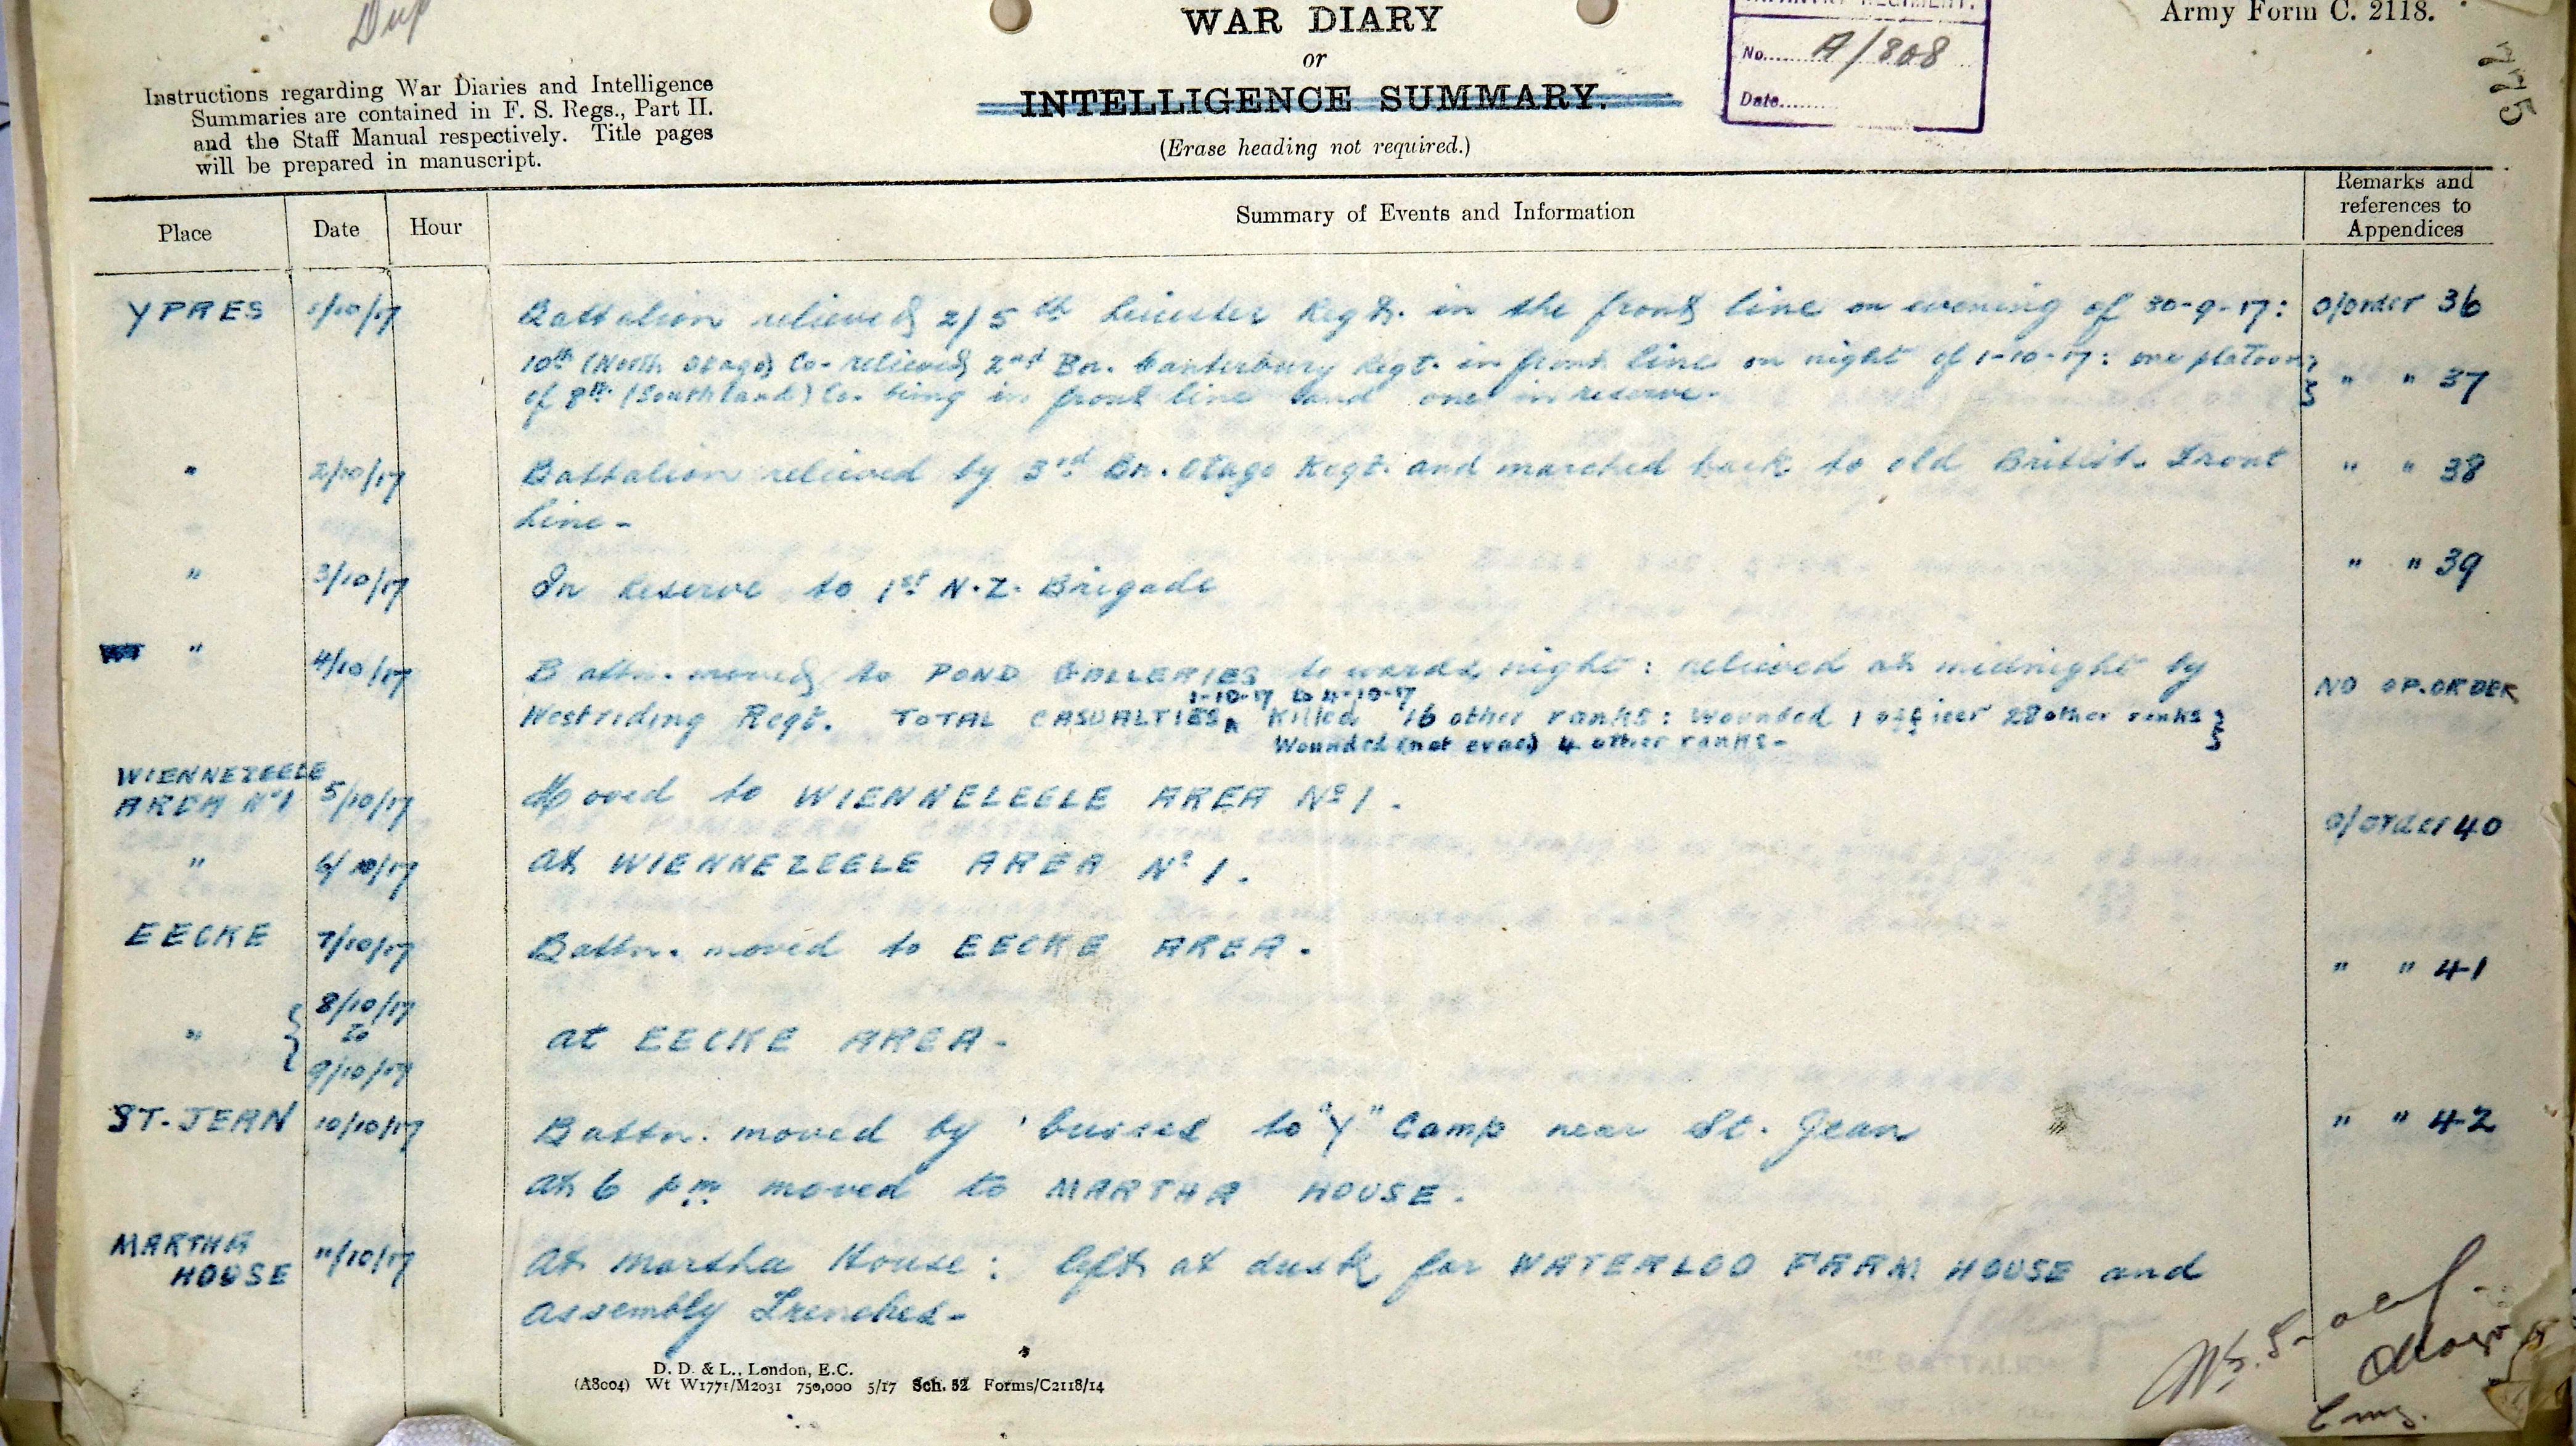 Dup
WAR DIARY
or
INTELLIGENCE SUMMARY.
(Erase heading not required.)
Army Form C. 2118.
INFANTRY REGIMENT.
No. A/808
Date
775
Instructions regarding War Diaries and Intelligence
Summaries are contained in F. S. Regs., Part II.
and the Staff Manual respectively. Title pages
will be prepared in manuscript.
Place Date Hour Summary of Events and Information Remarks and references to Appendices
YPRES 1/10/17 Battalion relieved 2/5th Leicester Regt. in the front line on evening of 30-9-17: O/order 36
10th (North Otago) Co. relieved 2nd Bn. Canterbury Regt. in front line on night of 1-10-17: one platoon
of 8th (Southland) Co. being in front line and one in reserve. " " 37
" 2/10/17 Battalion relieved by 3rd Bn. Otago Regt. and marched back to old British Front " " 38
Line -
" 3/10/17 In Reserve to 1st N.Z. Brigade " " 39
" 4/10/17 Battn. moved to POND GALLERIES towards night: relieved at midnight by NO OP. ORDER
1-10-17 to 4-10-17
Westriding Regt. TOTAL CASUALTIES Killed 16 other ranks: Wounded 1 officer 28 other ranks
Wounded (not evac) 4 other ranks -
WIENNEZEELE
AREA No 1 5/10/17 Moved to WIENNEZEELE AREA No 1. O/order 40
" 6/10/17 At WIENNEZEELE AREA No 1.
EECKE 7/10/17 Battn. moved to EECKE AREA. " " 41
" 8/10/17
to
9/10/17 at EECKE AREA -
ST. JEAN 10/10/17 Battn. moved by 'busses to "Y" Camp near St. Jean " " 42
At 6 pm moved to MARTHA HOUSE.
MARTHA
HOUSE 11/10/17 At Martha House: left at dusk for WATERLOO FARM HOUSE and
Assembly Trenches -
D. D. & L., London, E.C.
(A8004) Wt W1771/M2031 750,000 5/17 Sch. 52 Forms/C2118/14
Major
Comg.